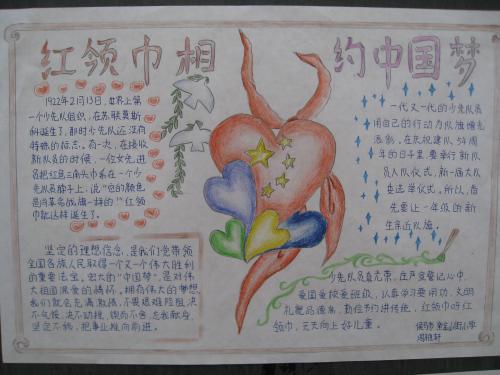 红领巾相约中国梦
1922年2月13日,世界上第
一个少先队组织,在苏联莫斯
科诞生了,那时少先队还没有
特殊的标志。有一次,在接收
新队员的时候,一位女先进
员把红三角头巾系在一个少
先队员脖子上,说"它的颜色
是同革命战旗一样的"红领
巾就这样诞生了。
一代又一代的少先队员
用自己的行动为队旗增光
添彩,在庆祝建队54周
年的日子里,要举行新队
员入队仪式,新一届大队
委选举仪式。所以,首
先要让一年级的新
生亲近队旗。
坚定的理想信念,是我们党带领
全国各族人民取得一个又一个伟大胜利
的重要法宝。宏大的"中国梦"是对伟
大祖国深爱的情怀。拥有伟大的梦想,
我们就会充满激情,不畏艰难险阻,决
不气馁,决不动摇,锲而不舍,忘我献身,
坚定不移,把事业推向前进。
少先队员真光荣,庄严宣誓记心中,
爱国爱校爱班级,认真学习要用功,文明
礼貌品德高,勤俭节约讲传统,红领巾呀红
领巾,天天向上好儿童。